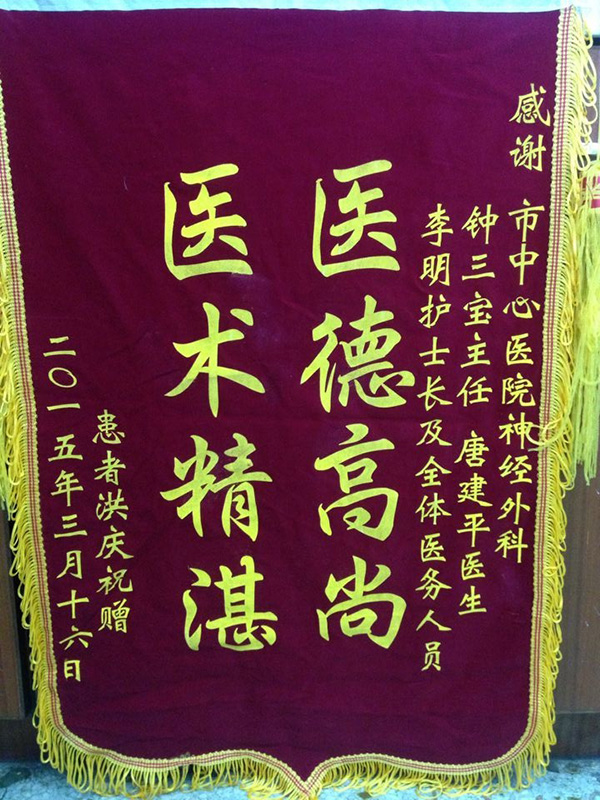 感谢 市中心医院神经外科
钟三宝主任 唐建平医生
李明护士长及全体医务人员
医德高尚
医术精湛
患者洪庆祝赠
二〇一五年三月十六日